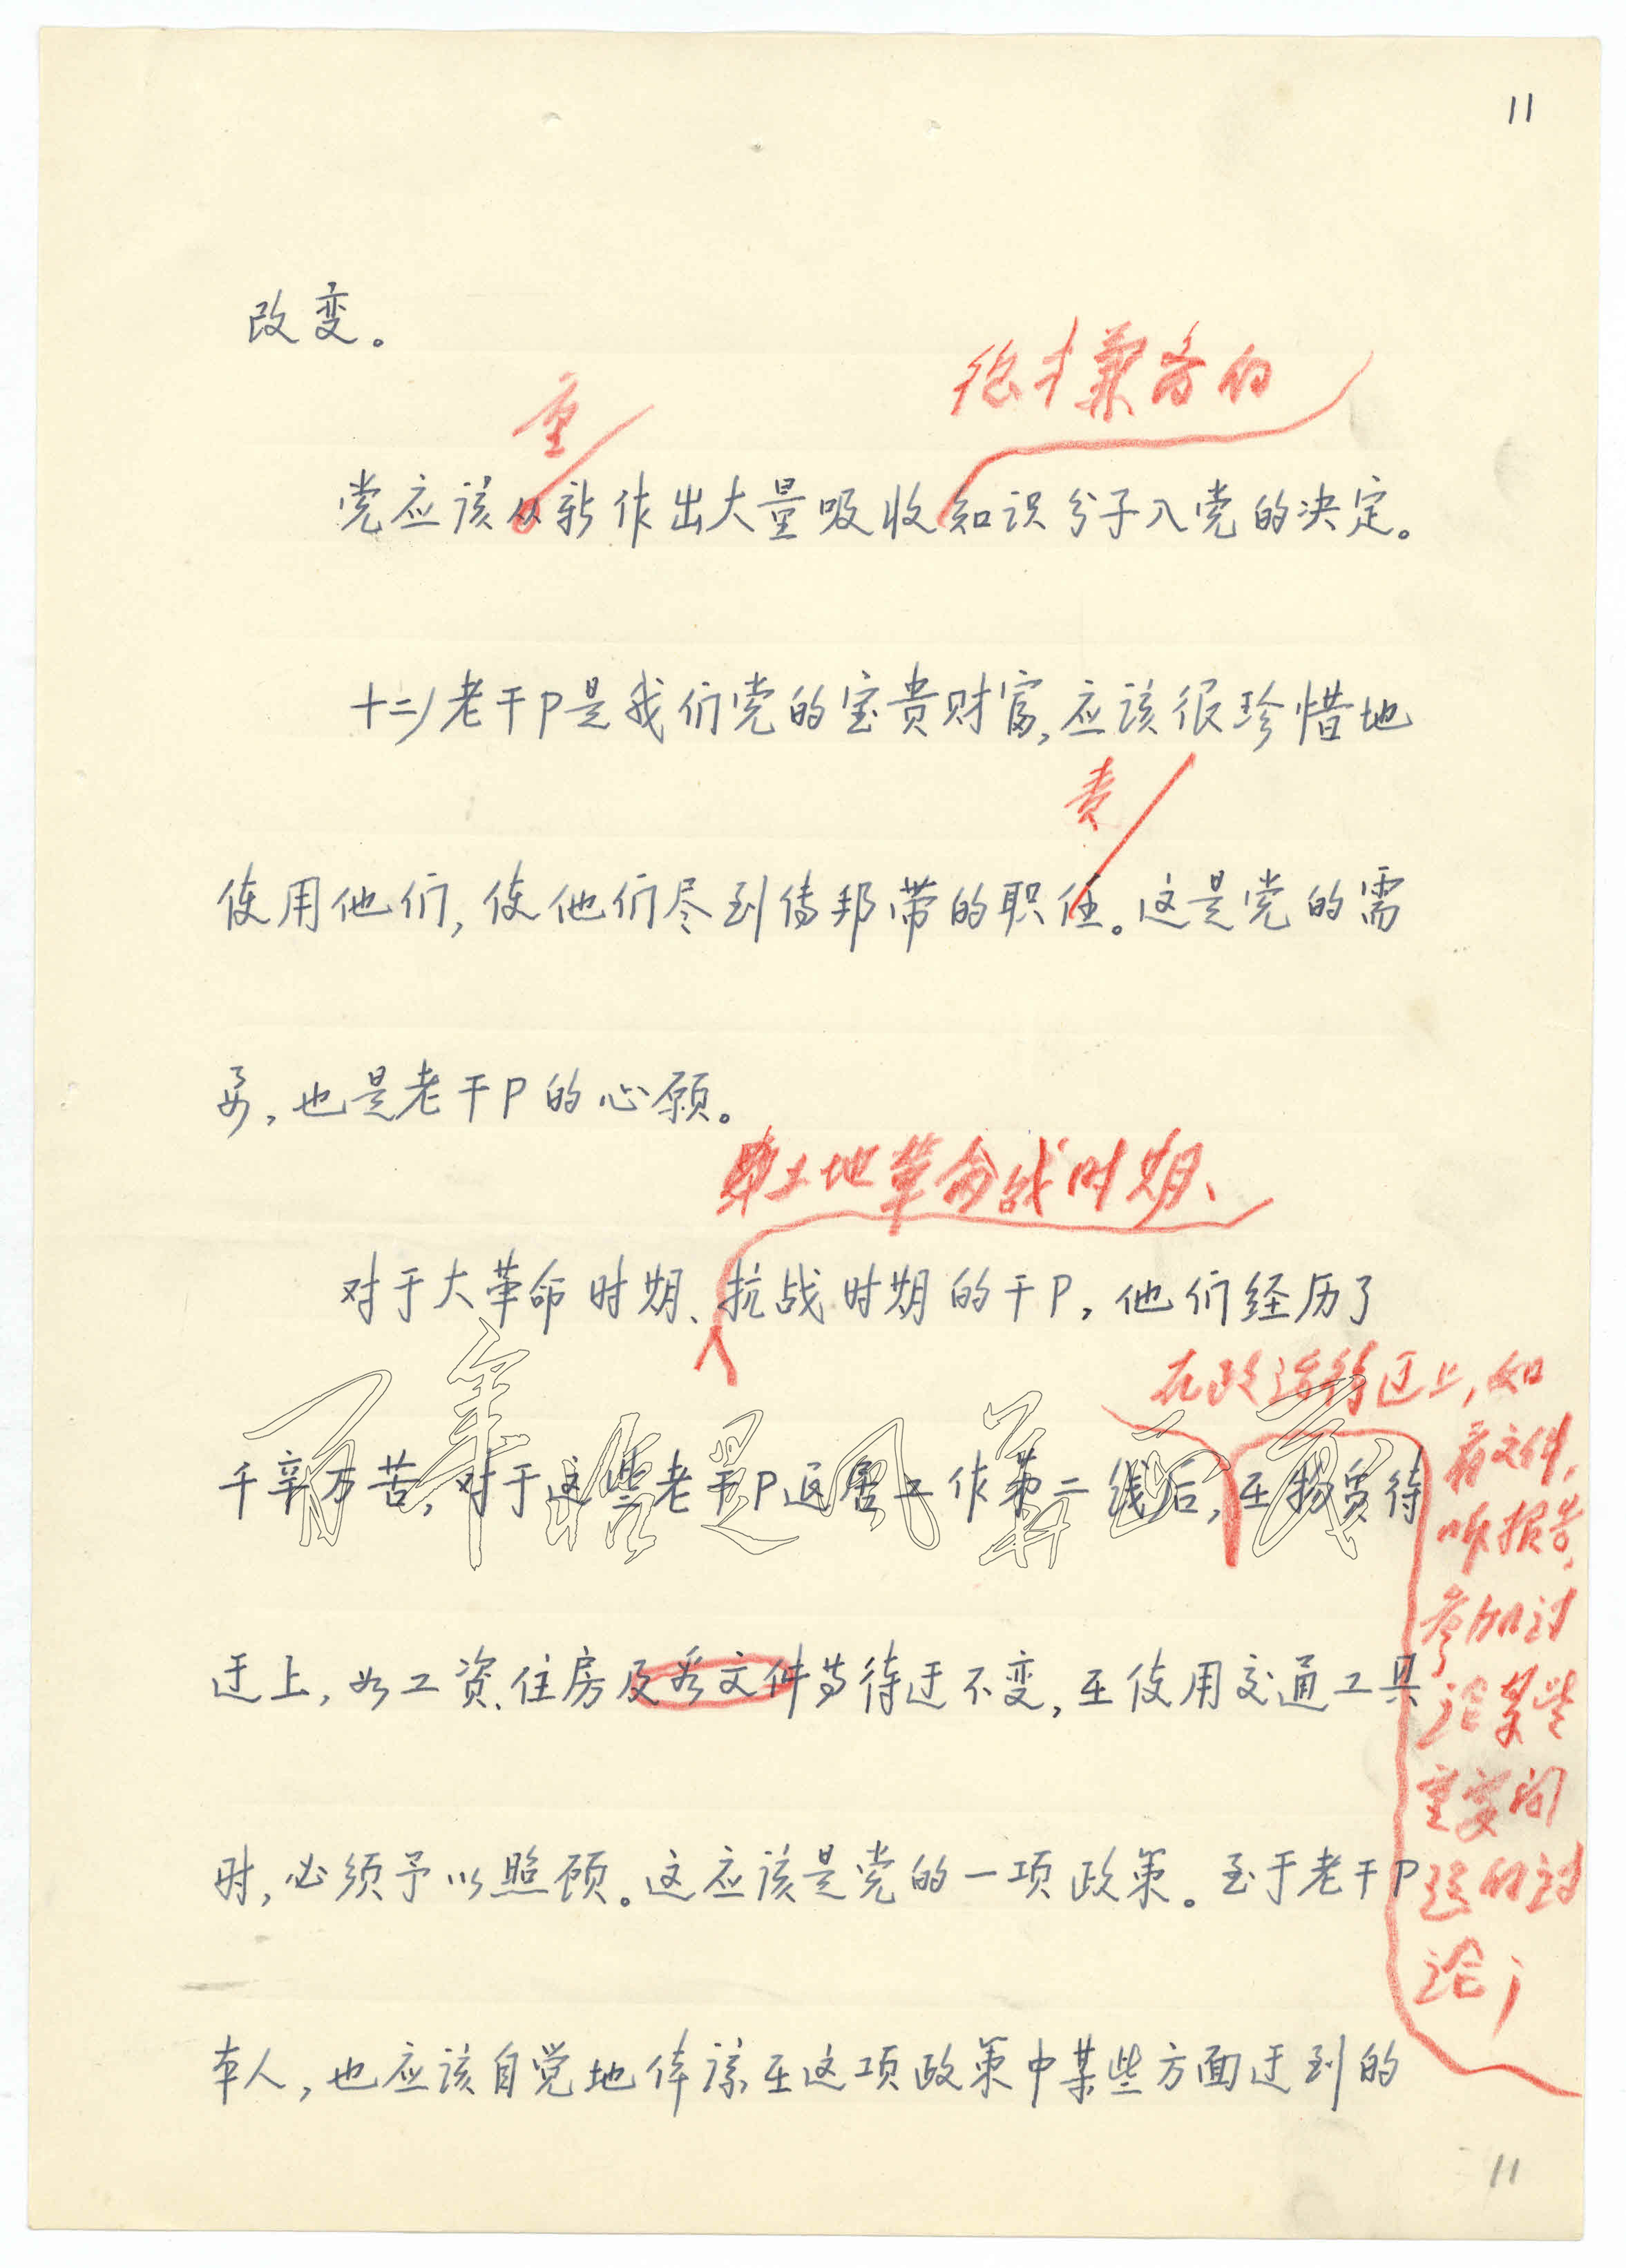 11
改变。
重
德才兼备的
党应该从新作出大量吸收知识分子入党的决定。
十二)老干P是我们党的宝贵财富,应该很珍惜地
责
使用他们,使他们尽到传帮带的职任。这是党的需
要,也是老干P的心愿。
土地革命战时期、
对于大革命时期、抗战时期的干P,他们经历了
在政治待迂上,如
看文件,
听报告,
参加讨
论某些
重要问
题的讨
论;
百年恰是风华正茂
千辛万苦,对于这些老干P退居工作第二线后,在物质待
迂上,如工资、住房及看文件等待迂不变,在使用交通工具
时,必须予以照顾。这应该是党的一项政策。至于老干P
本人,也应该自觉地体谅在这项政策中某些方面迂到的
11